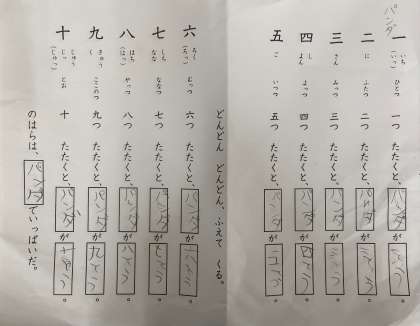 パンダ
一 いち (いっ) ひとつ 一つ たたくと、パンダが 一とう。
二 に ふたつ 二つ たたくと、パンダが 二とう。
三 さん みっつ 三つ たたくと、パンダが 三とう。
四 し よん よっつ 四つ たたくと、パンダが 四とう。
五 ご いつつ 五つ たたくと、パンダが 五とう。
どんどん どんどん、ふえて くる。
六 ろく (ろっ) むっつ 六つ たたくと、パンダが 六とう。
七 しち なな ななつ 七つ たたくと、パンダが 七とう。
八 はち (はっ) やっつ 八つ たたくと、パンダが 八とう。
九 きゅう く ここのつ 九つ たたくと、パンダが 九とう。
十 じゅう じっ (じゅっ) とお 十 たたくと、パンダが 十とう。
のはらは、パンダでいっぱいだ。